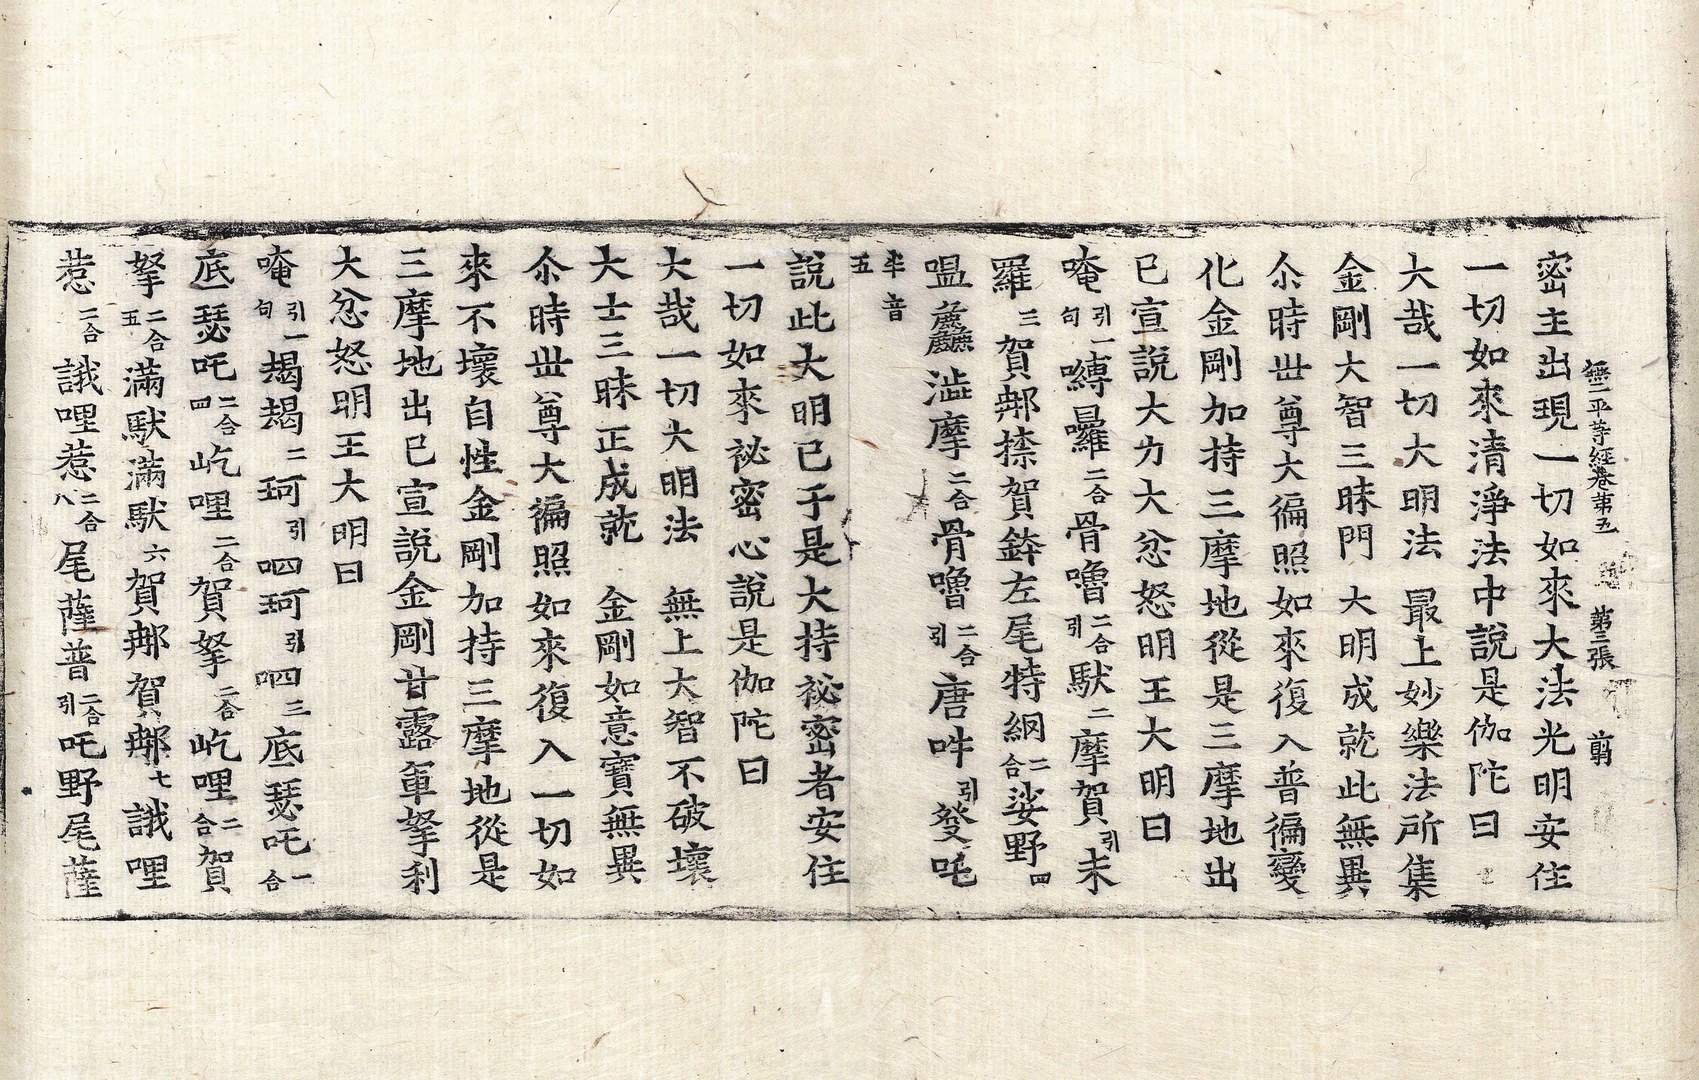 無二平等經卷第五 第三張 剪
密主出現一切如來大法光明安住
一切如來清淨法中說是伽陀曰
大哉一切大明法 最上妙樂法所集
金剛大智三昧門 大明成就此無異
尒時世尊大徧照如來復入普徧變
化金剛加持三摩地從是三摩地出
已宣說大力大忿怒明王大明曰
唵引一句嚩囉二合骨嚕二合引馱二摩賀引未
羅三賀那捺賀鉢左尾特網二合娑野四
嗢蠡澁摩二合骨嚕二合引唐吽引發吒
半音五
說此大明已于是大持祕密者安住
一切如來祕密心說是伽陀曰
大哉一切大明法 無上大智不破壞
大士三昧正成就 金剛如意寶無異
尒時世尊大徧照如來復入一切如
來不壞自性金剛加持三摩地從是
三摩地出已宣說金剛甘露軍拏利
大忿怒明王大明曰
唵引一句朅朅二珂引呬珂引呬三底瑟吒二合
底瑟吒二合四屹哩二合賀拏二合屹哩二合賀
拏二合五滿馱滿馱六賀那賀那七誐哩
惹二合誐哩惹二合八尾薩普二合引吒野尾薩